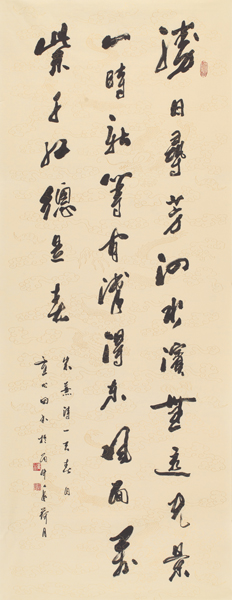 勝日尋芳泗水濱無邊光景
一時新等閒識得東風面萬
紫千紅總是春
朱熹詩一首春日
於丙申年荷月